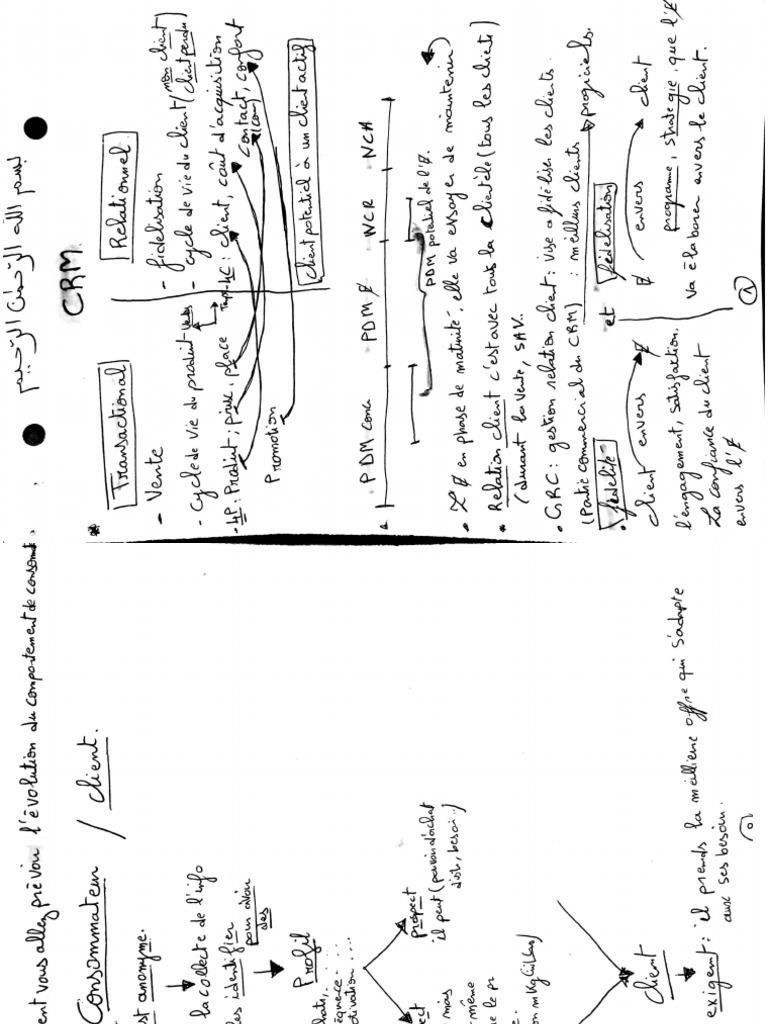 بسم الله الرحمن الرحيم
CRM
Transactional
- Vente
- Cycle de vie du produit
- 4P: Produit, prix, place
Promotion
Relationnel
- fidelisation
- cycle de vie du client (mon client / client perdu)
4C: client, coût d'acquisition
contact, confort
client potentiel à un client actif
PDM conc PDM Ø NCR NCA
PDM potentiel de l'Ø.
• L'Ø en phase de maturité, elle va essayer de maintenir
Relation client c'est avec tous la clientèle (tous les clients)
(durant la vente, SAV..
• GRC: gestion relation client: vise a fidéliser les clients.
(Partie commercial du CRM) : meilleurs clients progiciels.
• fidelité et fidélisation
client envers Ø
l'engagement, satisfaction.
La confiance du client
envers l'Ø
Ø envers client
programme, strategie, que l'Ø
va élaborer envers le client.
1
ent vous allez prévoir l'évolution du comportement de consom.
Consommateur / client.
st anonyme.
la collecte de l'info
les identifier
pour avoir
des
Profil
prospect
il peut (pouvoir d'achat
besoin..)
mais
même
Client
exigent: il prends la meilliene offre qui s'adapte
aux ses besoin.